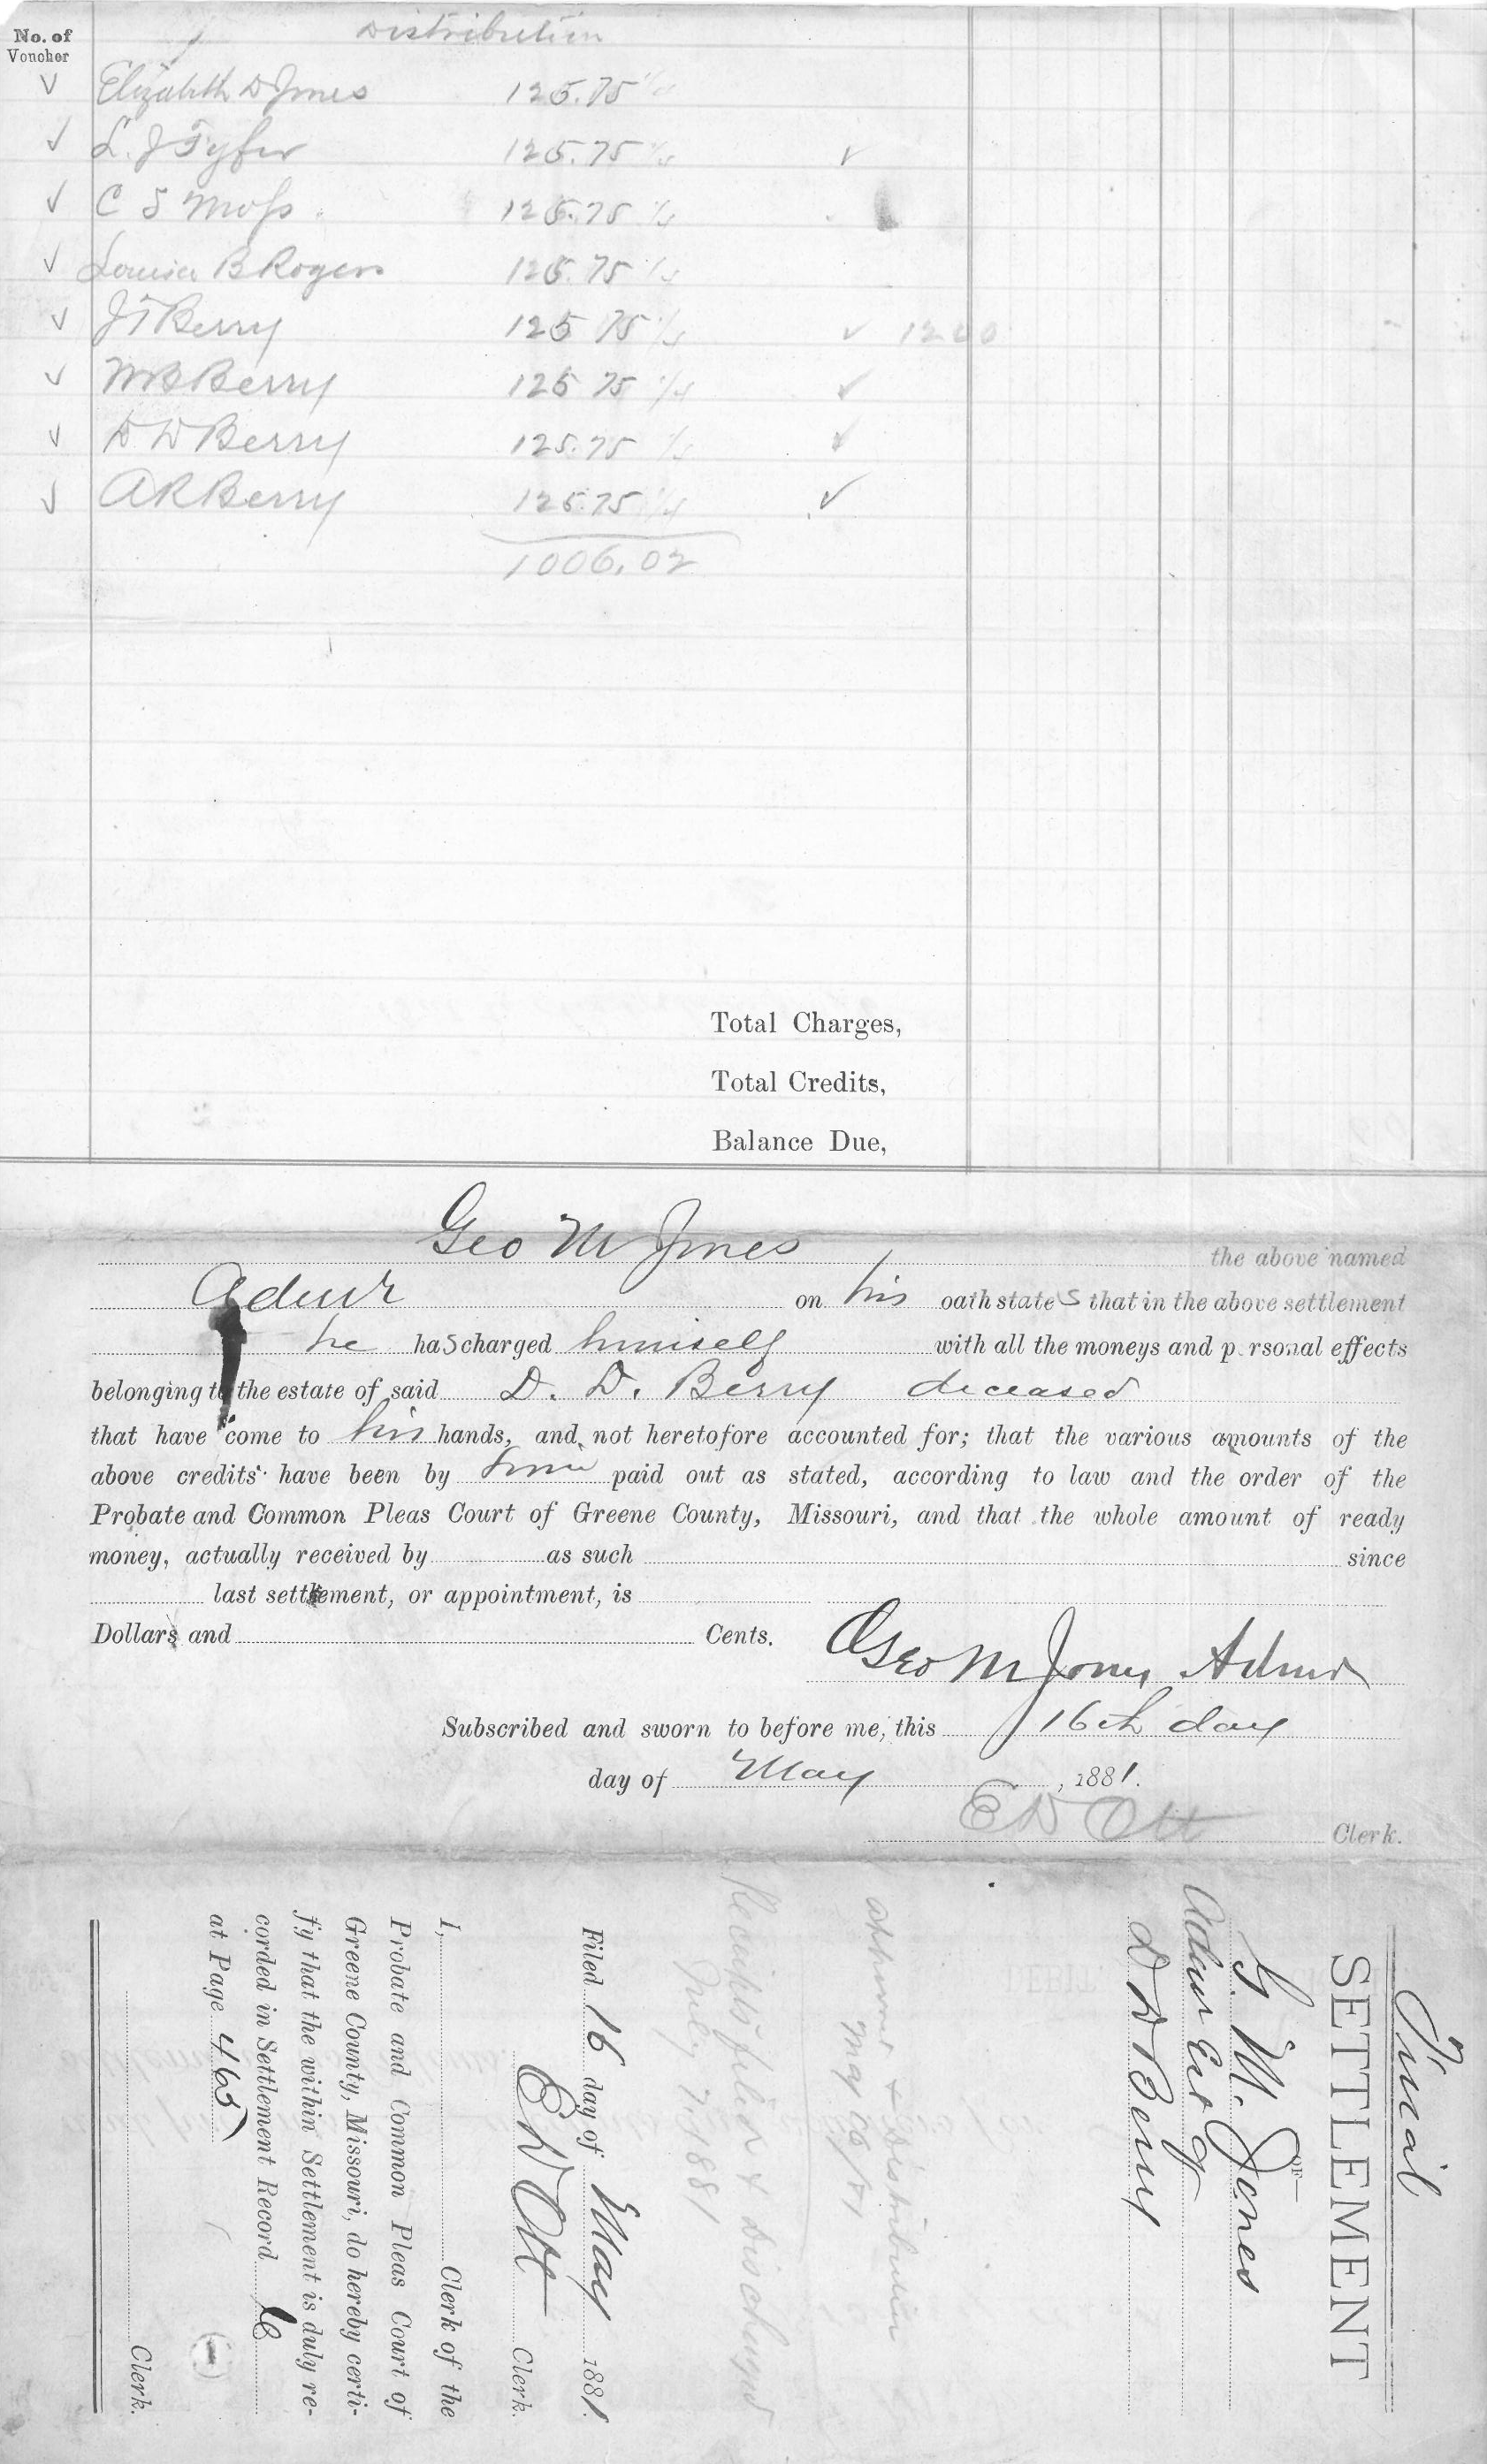 Distribution
No. of
Voucher
✓ Elizabeth D Jones 125.75 1/4
✓ L. J Fyfer 125.75 1/4 ✓
✓ C S Moss 125.75 1/4
✓ Louisa B Rogers 125.75 1/4
✓ J T Berry 125 75 1/4 ✓ 1200
✓ W B Berry 125 75 1/4 ✓
✓ D D Berry 125.75 1/4 ✓
✓ A R Berry 125.75 1/4 ✓
1006.02
Total Charges,
Total Credits,
Balance Due,
Geo M Jones the above named
Admr on his oath states that in the above settlement
he has charged himself with all the moneys and p rsonal effects
belonging to the estate of said D. D. Berry deceased
that have come to his hands, and not heretofore accounted for; that the various amounts of the
above credits have been by him paid out as stated, according to law and the order of the
Probate and Common Pleas Court of Greene County, Missouri, and that the whole amount of ready
money, actually received by as such since
last settlement, or appointment, is
Dollars and Cents.
Geo M Jones Admr
Subscribed and sworn to before me, this 16th day
day of May, 1881.
E D Ott Clerk.
Final
SETTLEMENT
OF
G. M. Jones
Admr Est of
D D Berry
approved & Distribution
May
Receipts filed & Discharged
July 7, 1881
Filed 16 day of May 1881.
E D Ott Clerk.
I, Clerk of the
Probate and Common Pleas Court of
Greene County, Missouri, do hereby certi-
fy that the within Settlement is duly re-
corded in Settlement Record C
at Page 465
Clerk.